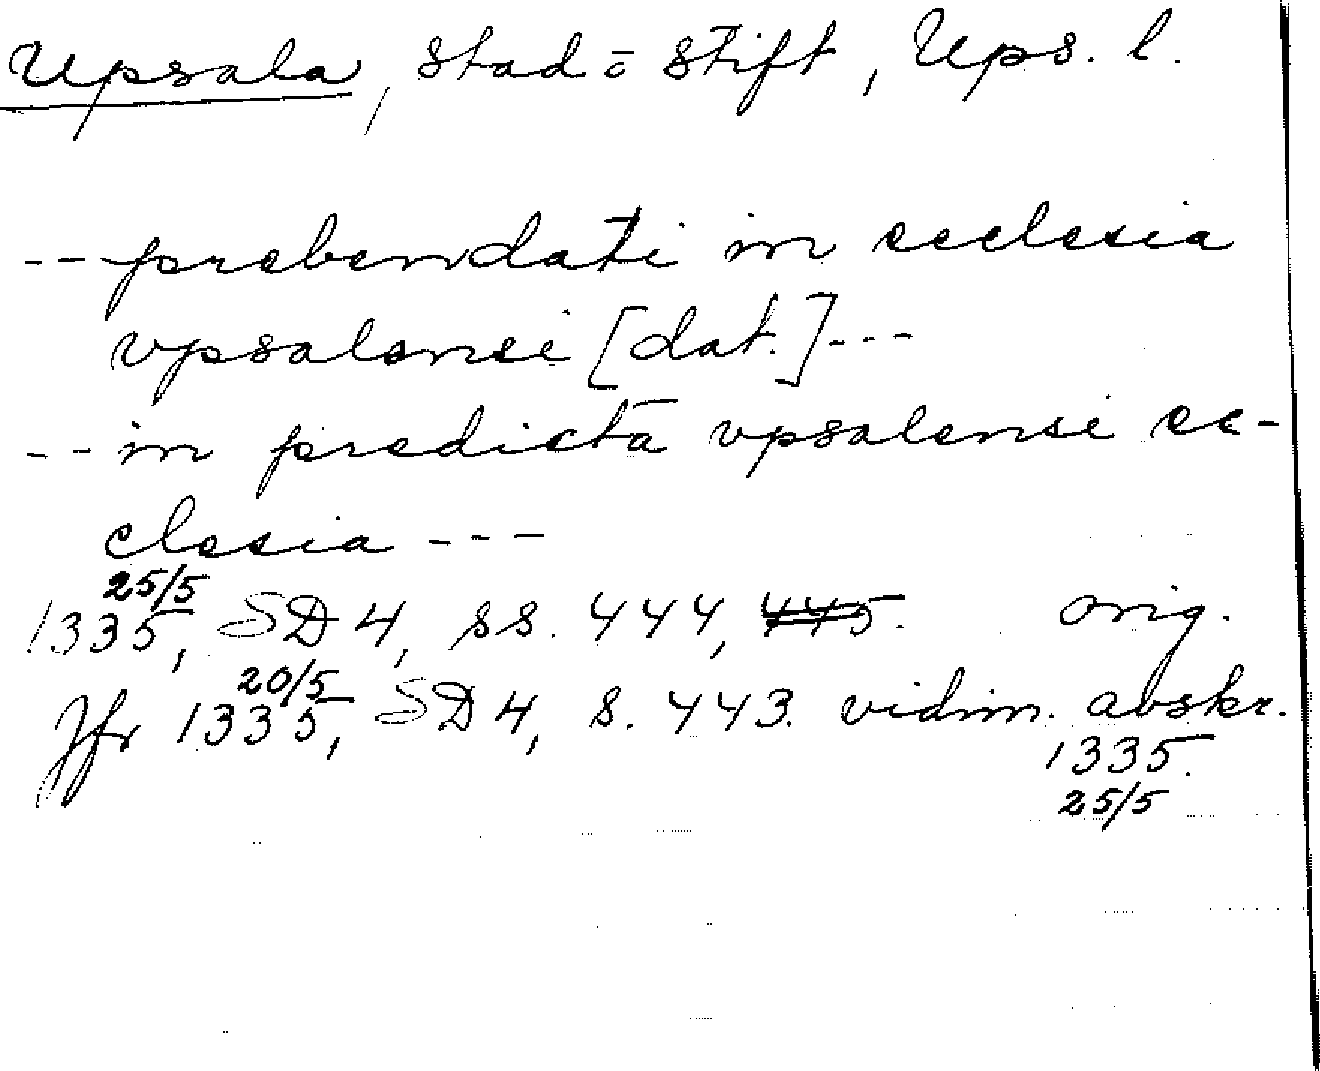 Upsala, stad o stift, Ups. l.
-- prebendati in ecclesia
vpsalensi [dat.] ---
-- in predicta vpsalensi ec-
clesia ---
25/5
1335, SD 4, ss. 444, 445. orig.
20/5
Jfr 1335, SD 4, s. 443. vidim. avskr.
1335.
25/5